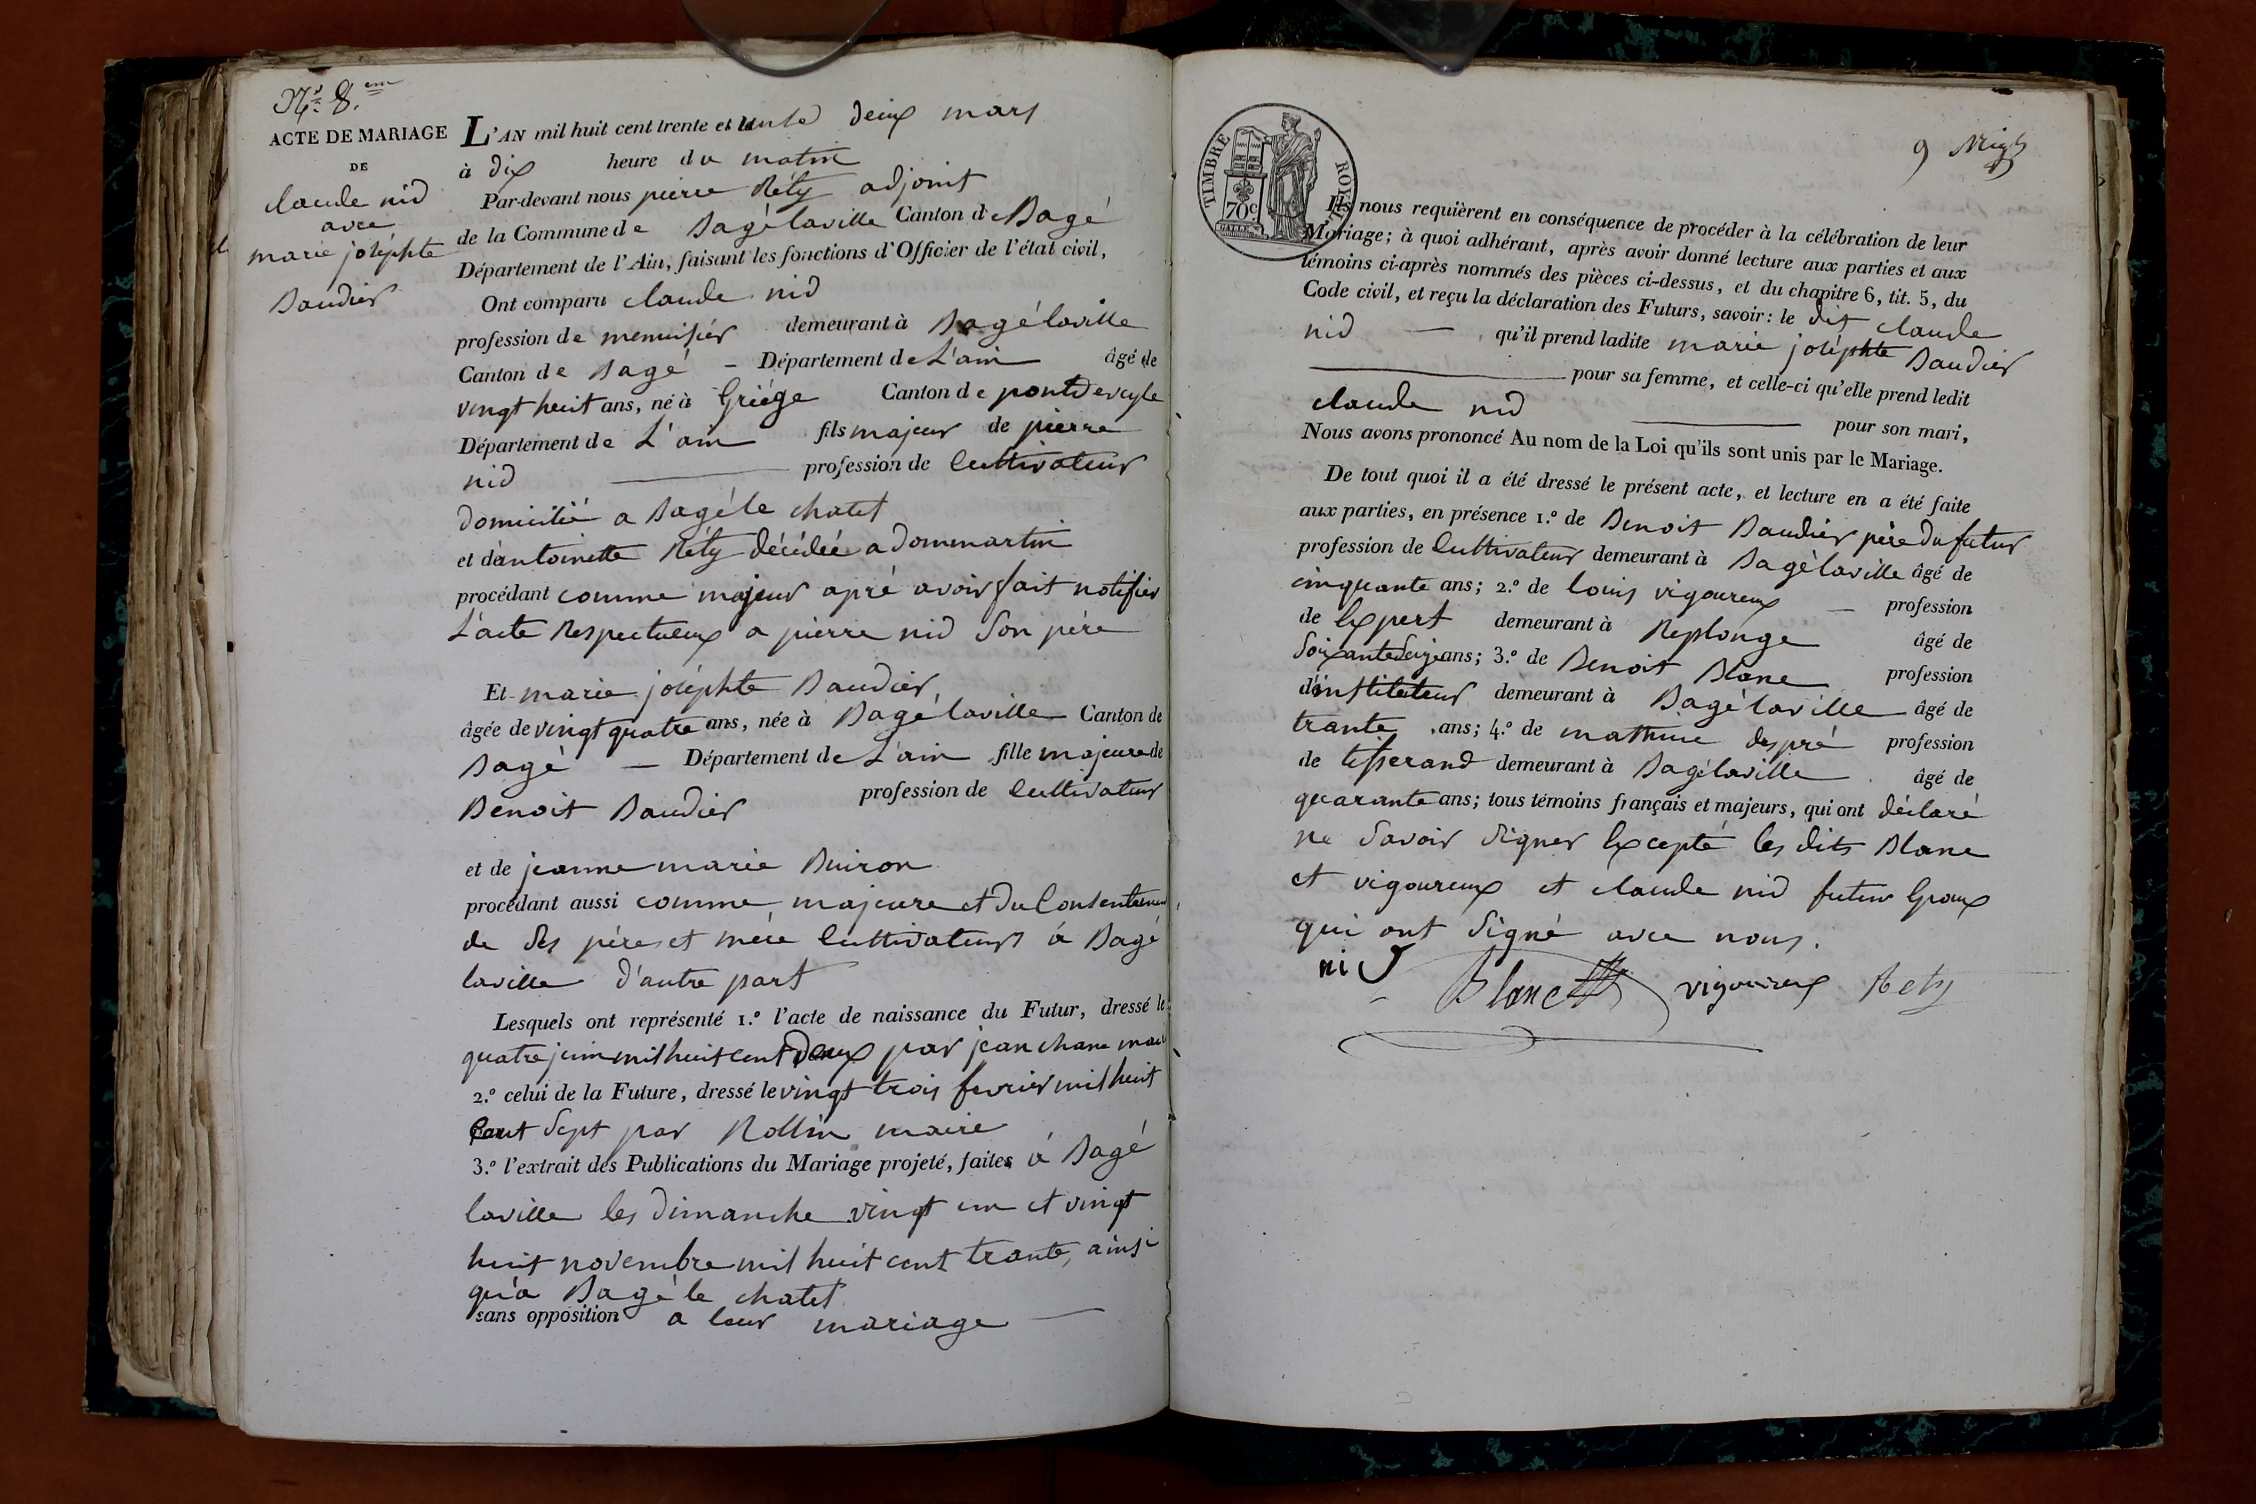 N.º 8.em
ACTE DE MARIAGE
DE
claude nid
avec
marie joséphte
Baudier
L'AN mil huit cent trente et un le deux mars
à dix heure du matin
Par-devant nous pierre Réty adjoint
de la Commune de Bagélaville Canton de Bagé
Département de l'Ain, faisant les fonctions d'Officier de l'état civil,
Ont comparu claude nid
profession de menuisier demeurant à Bagélaville
Canton de Bagé – Département de L'ain âgé de
vingt huit ans, né à Griége Canton de pontdeveyle
Département de L'ain fils majeur de pierre
nid profession de Cultivateur
domicilié a Bagé le chatel
et d'antoinette Réty décédée a dommartin
procédant comme majeur apré avoir fait notifier
L'acte Respectueux a pierre nid Son père
Et marie joséphte Baudier
âgée de vingt quatre ans, née à Bagélaville Canton de
Bagé – Département de L'ain fille majeure de
Benoit Baudier profession de Cultivateur
et de jeanne marie Buiron
procédant aussi comme majeure et du Consentement
de Ses père et mére Cultivateurs á Bagé
laville d'autre part
Lesquels ont représenté 1.º l'acte de naissance du Futur, dressé le
quatre juin mil huit cent Deux par jean chane maire
2.º celui de la Future, dressé le vingt trois fevrier mil huit
Cent Sept par Rollin maire
3.º l'extrait des Publications du Mariage projeté, faites á Bagé
laville les dimanche vingt un et vingt
huit novembre mil huit cent trante, ainsi
qu'a Bagé le chatel
sans opposition a leur mariage
9
TIMBRE ROYAL
70c
Ils nous requièrent en conséquence de procéder à la célébration de leur
Mariage; à quoi adhérant, après avoir donné lecture aux parties et aux
témoins ci-après nommés des pièces ci-dessus, et du chapitre 6, tit. 5, du
Code civil, et reçu la déclaration des Futurs, savoir: le dit claude
nid – qu'il prend ladite marie joséphte Baudier
pour sa femme, et celle-ci qu'elle prend ledit
claude nid pour son mari,
Nous avons prononcé Au nom de la Loi qu'ils sont unis par le Mariage.
De tout quoi il a été dressé le présent acte, et lecture en a été faite
aux parties, en présence 1.º de Benoit Baudier père du futur
profession de Cultivateur demeurant à Bagélaville âgé de
cinquante ans; 2.º de louis vigoureux – profession
de Expert demeurant à Replonge âgé de
Soixanteseize ans; 3.º de Benoit Blanc profession
d'instituteur demeurant à Bagélaville âgé de
trante ans; 4.º de mathieu despré profession
de tisserand demeurant à Bagélaville âgé de
quarante ans; tous témoins français et majeurs, qui ont déclaré
ne Savoir Signer Excepté les dits Blanc
et vigoureux et claude nid futur Epoux
qui ont Signé avec nous.
niD Blanc vigoureux Rety